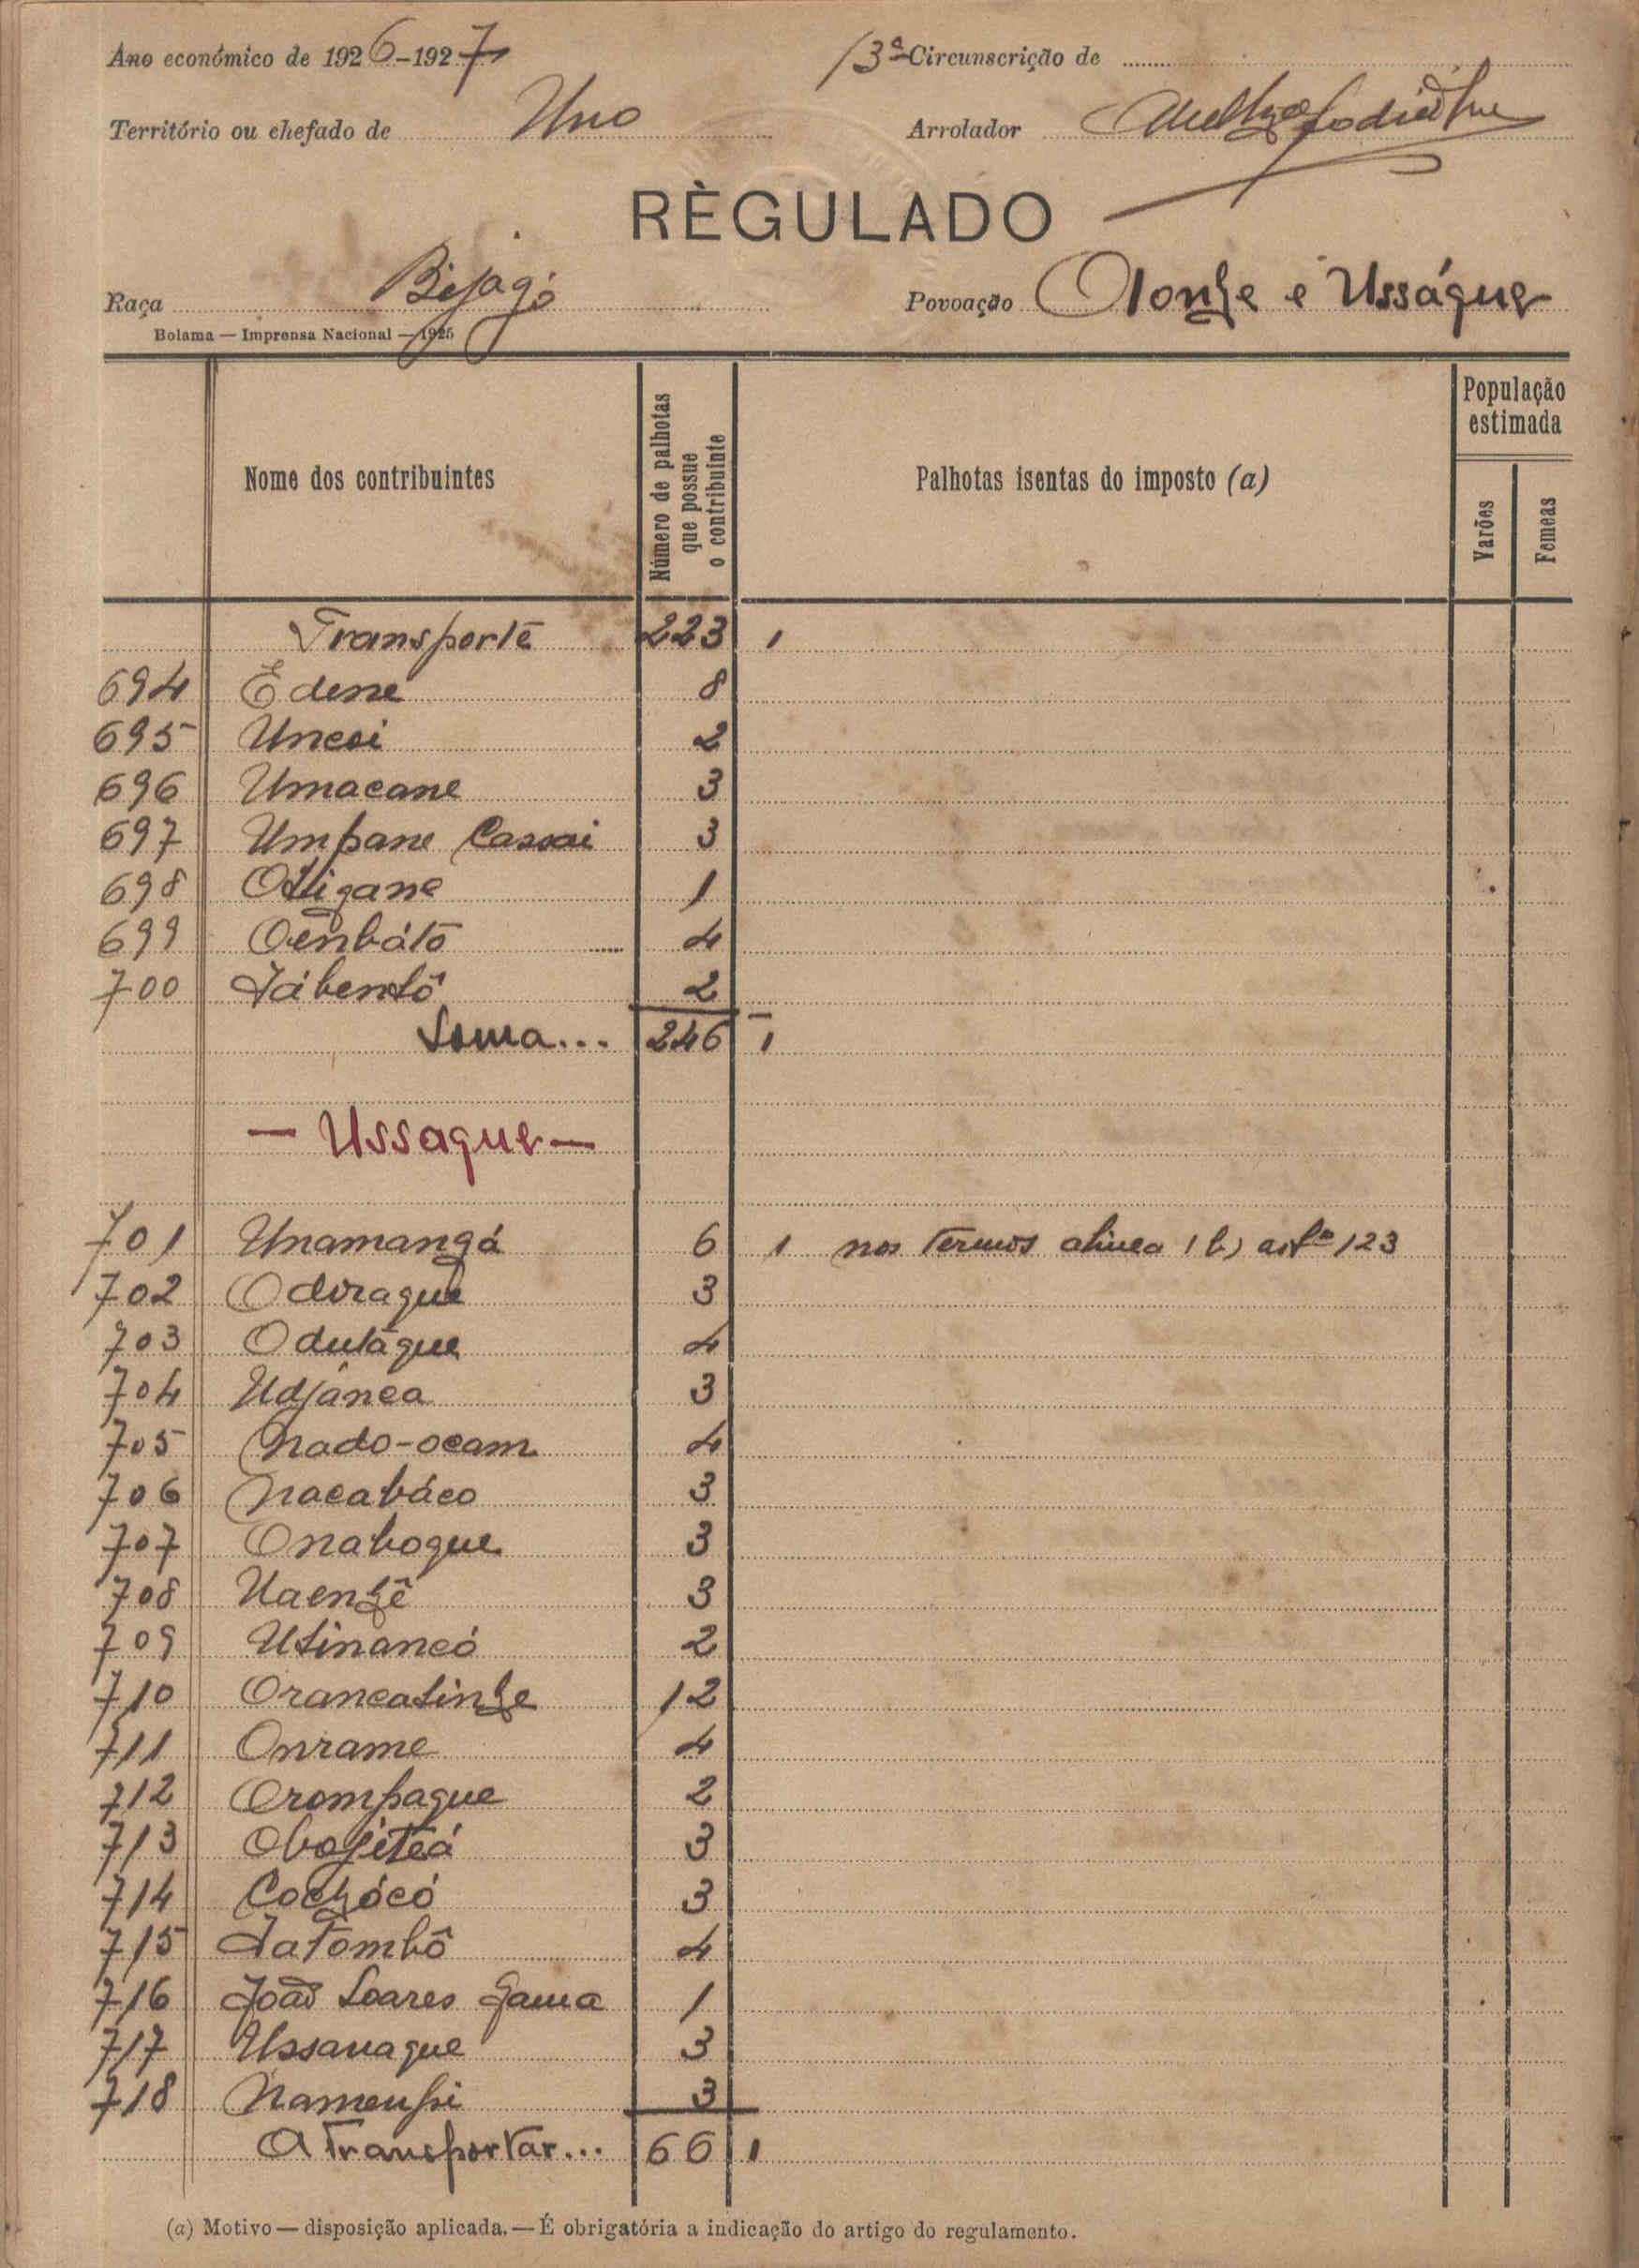 Ano económico de 1926-1927 13ª Circunscrição de
Território ou chefado de Uno Arrolador
RÈGULADO
Raça Bijagó Povoação Olonhe e Ussáque
Bolama — Imprensa Nacional — 1925
Nome dos contribuintes Número de palhotas que possue o contribuinte Palhotas isentas do imposto (a) População estimada
Varões Femeas
Transporte 223 1
694 Edene 8
695 Unesi 2
696 Umacane 3
697 Umpane Cassai 3
698 Otigane 1
699 Oenbátô 4
700 Jábentô 2
Soma... 246 1
— Ussaque —
701 Unamangá 6 1 nos termos alinea (b) artº 123
702 Odiraque 3
703 Odutáque 4
704 Udjánca 3
705 Nado-ocam 4
706 Nacabáco 3
707 Onaboque 3
708 Uaenhê 3
709 Utinancó 2
710 Orancatinhe 12
711 Onrame 4
712 Orompaque 2
713 Obojiteá 3
714 Cochócó 3
715 Jatombô 4
716 João Soares Gama 1
717 Ussanaque 3
718 Nameupi 3
A Transportar... 66 1
(a) Motivo — disposição aplicada. — É obrigatória a indicação do artigo do regulamento.